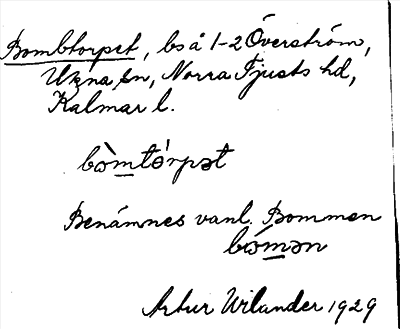 Bombtorpet, bs å 1-2 Överström,
Ukna sn, Norra Tjusts hd,
Kalmar l.
bòmtórpət
Benämnes vanl. Bommen
bómən
Artur Wilander 1929